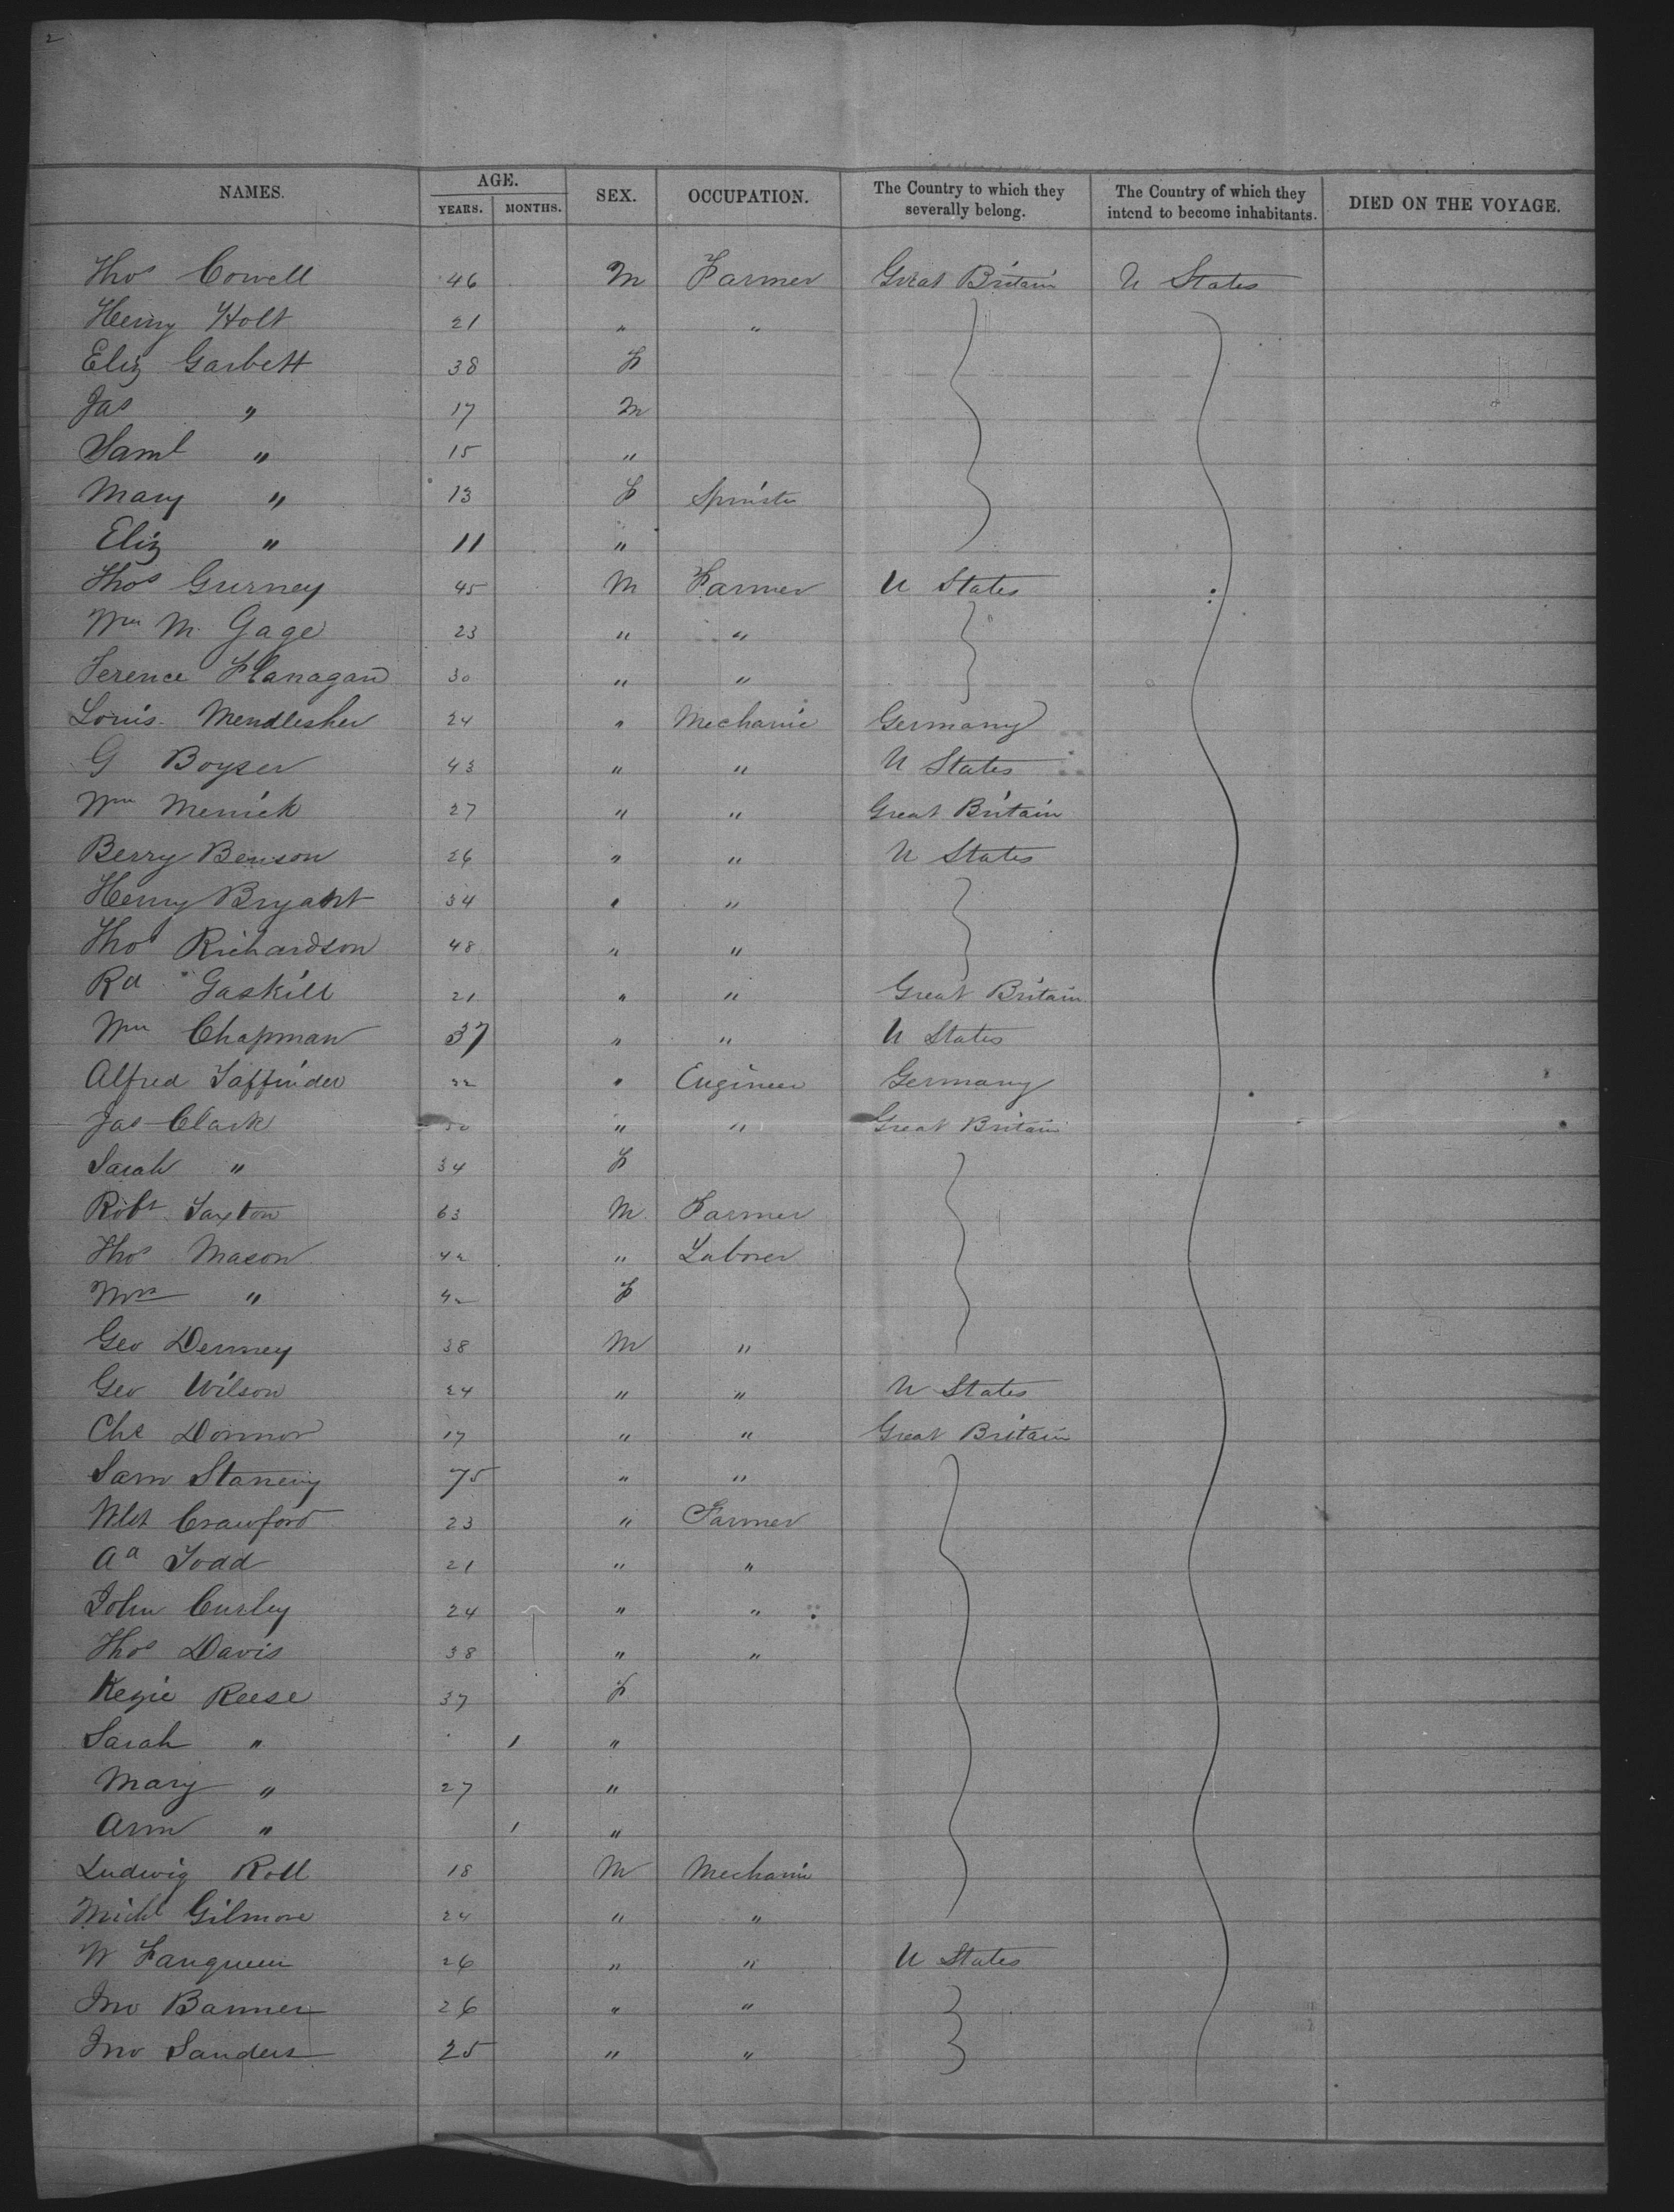 2
NAMES. AGE. YEARS. MONTHS. SEX. OCCUPATION. The Country to which they severally belong. The Country of which they intend to become inhabitants. DIED ON THE VOYAGE.
Thos Cowell 46 M Farmer Great Britain U States
Henry Holt 21 " "
Eliz Garbett 38 F
Jas " 17 M
Saml " 15 "
Mary " 13 F Spinster
Eliz " 11 "
Thos Gurney 45 M Farmer U States
Wm M. Gage 23 " "
Terence Flanagan 30 " "
Louis Mendlesher 24 " Mechanic Germany
G Boyser 43 " " U States
Wm Merrick 27 " " Great Britain
Berry Benson 26 " " U States
Henry Bryant 34 " "
Thos Richardson 48 " "
Rd Gaskill 21 " " Great Britain
Wm Chapman 37 " " U States
Alfred Taffinder 22 " Engineer Germany
Jas Clark 30 " " Great Britain
Sarah " 34 F
Robt Saxton 63 M Farmer
Thos Macon 42 " Laborer
Mrs " 42 F
Geo Denney 38 M "
Geo Wilson 24 " " U States
Chs Dormor 17 " " Great Britain
Sam 75 " "
Crawford 23 " Farmer
Aa Todd 21 " "
John Curley 24 " "
Thos Davis 38 " "
Kezie Reese 37 F
Sarah " 1 "
Mary " 27 "
Ann " 1 "
Ludwig Roll 18 M Mechanic
Michl Gilmore 24 " "
W 26 " " U States
Jno Banner 26 " "
Jno Sanders 25 " "